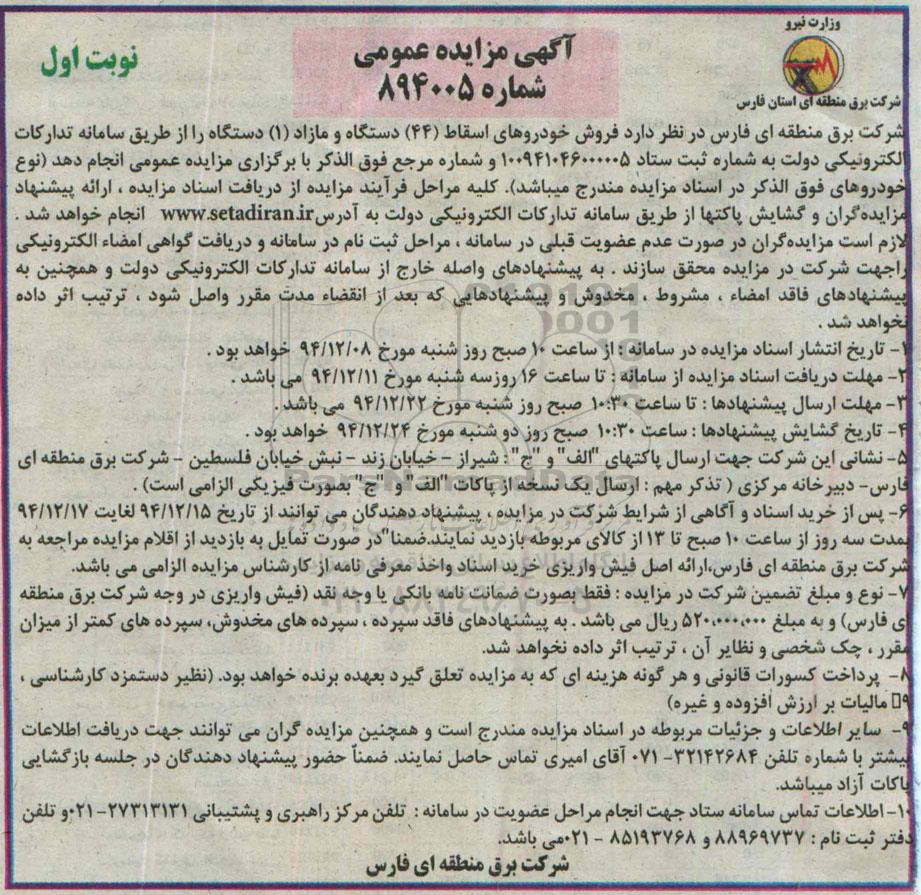 وزارت نیرو
شرکت برق منطقه ای استان فارس
آگهی مزایده عمومی
شماره ۸۹۴۰۰۵
نوبت اول
شرکت برق منطقه ای فارس در نظر دارد فروش خودروهای اسقاط (۴۴) دستگاه و مازاد (۱) دستگاه را از طریق سامانه تدارکات
الکترونیکی دولت به شماره ثبت ستاد ۱۰۰۹۴۱۰۴۶۰۰۰۰۰۵ و شماره مرجع فوق الذکر با برگزاری مزایده عمومی انجام دهد (نوع
خودروهای فوق الذکر در اسناد مزایده مندرج میباشد). کلیه مراحل فرآیند مزایده از دریافت اسناد مزایده ، ارائه پیشنهاد
مزایده‌گران و گشایش پاکتها از طریق سامانه تدارکات الکترونیکی دولت به آدرس www.setadiran.ir انجام خواهد شد .
لازم است مزایده‌گران در صورت عدم عضویت قبلی در سامانه ، مراحل ثبت نام در سامانه و دریافت گواهی امضاء الکترونیکی
راجهت شرکت در مزایده محقق سازند . به پیشنهادهای واصله خارج از سامانه تدارکات الکترونیکی دولت و همچنین به
پیشنهادهای فاقد امضاء ، مشروط ، مخدوش و پیشنهادهایی که بعد از انقضاء مدت مقرر واصل شود ، ترتیب اثر داده
نخواهد شد .
۱- تاریخ انتشار اسناد مزایده در سامانه : از ساعت ۱۰ صبح روز شنبه مورخ ۹۴/۱۲/۰۸ خواهد بود .
۲- مهلت دریافت اسناد مزایده از سامانه : تا ساعت ۱۶ روزسه شنبه مورخ ۹۴/۱۲/۱۱ می باشد .
۳- مهلت ارسال پیشنهادها : تا ساعت ۱۰:۳۰ صبح روز شنبه مورخ ۹۴/۱۲/۲۲ می باشد .
۴- تاریخ گشایش پیشنهادها : ساعت ۱۰:۳۰ صبح روز دو شنبه مورخ ۹۴/۱۲/۲۴ خواهد بود .
۵- نشانی این شرکت جهت ارسال پاکتهای "الف" و "ج" : شیراز - خیابان زند - نبش خیابان فلسطین - شرکت برق منطقه ای
فارس- دبیرخانه مرکزی ( تذکر مهم : ارسال یک نسخه از پاکات "الف" و "ج" بصورت فیزیکی الزامی است) .
۶- پس از خرید اسناد و آگاهی از شرایط شرکت در مزایده ، پیشنهاد دهندگان می توانند از تاریخ ۹۴/۱۲/۱۵ لغایت ۹۴/۱۲/۱۷
بمدت سه روز از ساعت ۱۰ صبح تا ۱۳ از کالای مربوطه بازدید نمایند.ضمنا"در صورت تمایل به بازدید از اقلام مزایده مراجعه به
شرکت برق منطقه ای فارس،ارائه اصل فیش واریزی خرید اسناد واخذ معرفی نامه از کارشناس مزایده الزامی می باشد.
۷- نوع و مبلغ تضمین شرکت در مزایده : فقط بصورت ضمانت نامه بانکی یا وجه نقد (فیش واریزی در وجه شرکت برق منطقه
ای فارس) و به مبلغ ۵۲۰،۰۰۰،۰۰۰ ریال می باشد . به پیشنهادهای فاقد سپرده ، سپرده های مخدوش، سپرده های کمتر از میزان
مقرر ، چک شخصی و نظایر آن ، ترتیب اثر داده نخواهد شد.
۸- پرداخت کسورات قانونی و هر گونه هزینه ای که به مزایده تعلق گیرد بعهده برنده خواهد بود. (نظیر دستمزد کارشناسی ،
۹٪ مالیات بر ارزش افزوده و غیره)
۹- سایر اطلاعات و جزئیات مربوطه در اسناد مزایده مندرج است و همچنین مزایده گران می توانند جهت دریافت اطلاعات
بیشتر با شماره تلفن ۳۲۱۴۲۶۸۴-۰۷۱ آقای امیری تماس حاصل نمایند. ضمناً حضور پیشنهاد دهندگان در جلسه بازگشایی
پاکات آزاد میباشد.
۱۰- اطلاعات تماس سامانه ستاد جهت انجام مراحل عضویت در سامانه : تلفن مرکز راهبری و پشتیبانی ۲۷۳۱۳۱۳۱-۰۲۱و تلفن
دفتر ثبت نام : ۸۸۹۶۹۷۳۷ و ۸۵۱۹۳۷۶۸ - ۰۲۱می باشد.
شرکت برق منطقه ای فارس